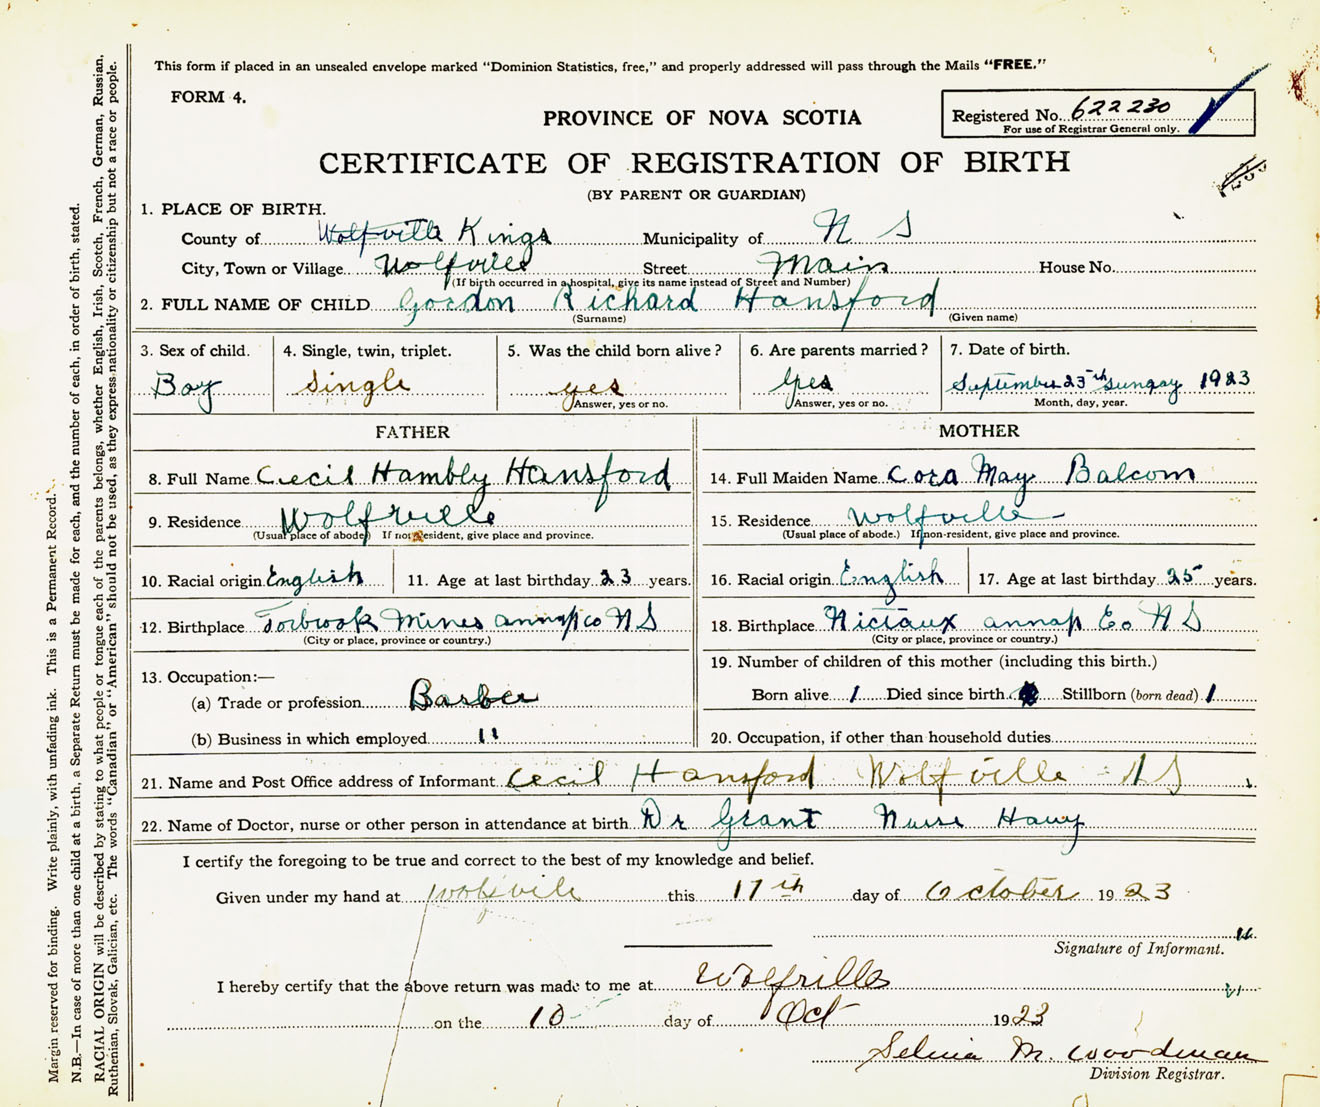 This form if placed in an unsealed envelope marked "Dominion Statistics, free," and properly addressed will pass through the Mails "FREE."
FORM 4.
PROVINCE OF NOVA SCOTIA
Registered No. 622230
For use of Registrar General only.
CERTIFICATE OF REGISTRATION OF BIRTH
(BY PARENT OR GUARDIAN)
1. PLACE OF BIRTH.
County of Wolfville Kings Municipality of N S
City, Town or Village Wolfville Street Main House No.
(If birth occurred in a hospital, give its name instead of Street and Number)
2. FULL NAME OF CHILD Gordon Richard Hansford
(Surname) (Given name)
3. Sex of child. 4. Single, twin, triplet. 5. Was the child born alive? 6. Are parents married? 7. Date of birth.
Boy Single yes yes September 23th Sunday 1923
Answer, yes or no. Answer, yes or no. Month, day, year.
FATHER MOTHER
8. Full Name Cecil Hambly Hansford 14. Full Maiden Name Cora May Balcom
9. Residence Wolfville 15. Residence Wolfville
(Usual place of abode) If not resident, give place and province. (Usual place of abode.) If non-resident, give place and province.
10. Racial origin English 11. Age at last birthday 23 years. 16. Racial origin English 17. Age at last birthday 25 years.
12. Birthplace Torbrook Mines annap co N S 18. Birthplace Nictaux annap Co N S
(City or place, province or country.) (City or place, province or country.)
13. Occupation:— 19. Number of children of this mother (including this birth.)
(a) Trade or profession Barber Born alive 1 Died since birth Stillborn (born dead) 1
(b) Business in which employed " 20. Occupation, if other than household duties
21. Name and Post Office address of Informant Cecil Hansford Wolfville N S
22. Name of Doctor, nurse or other person in attendance at birth Dr Grant Nurse
I certify the foregoing to be true and correct to the best of my knowledge and belief.
Given under my hand at Wolfville this 17th day of October 1923
Signature of Informant.
I hereby certify that the above return was made to me at Wolfville
on the 10 day of Oct 1923
Selina M. Woodman
Division Registrar.
Margin reserved for binding. Write plainly, with unfading ink. This is a Permanent Record.
N.B.—In case of more than one child at a birth, a Separate Return must be made for each, and the number of each, in order of birth, stated.
RACIAL ORIGIN will be described by stating to what people or tongue each of the parents belongs, whether English, Irish, Scotch, French, German, Russian,
Ruthenian, Slovak, Galician, etc. The words "Canadian" or "American" should not be used, as they express nationality or citizenship but not a race or people.